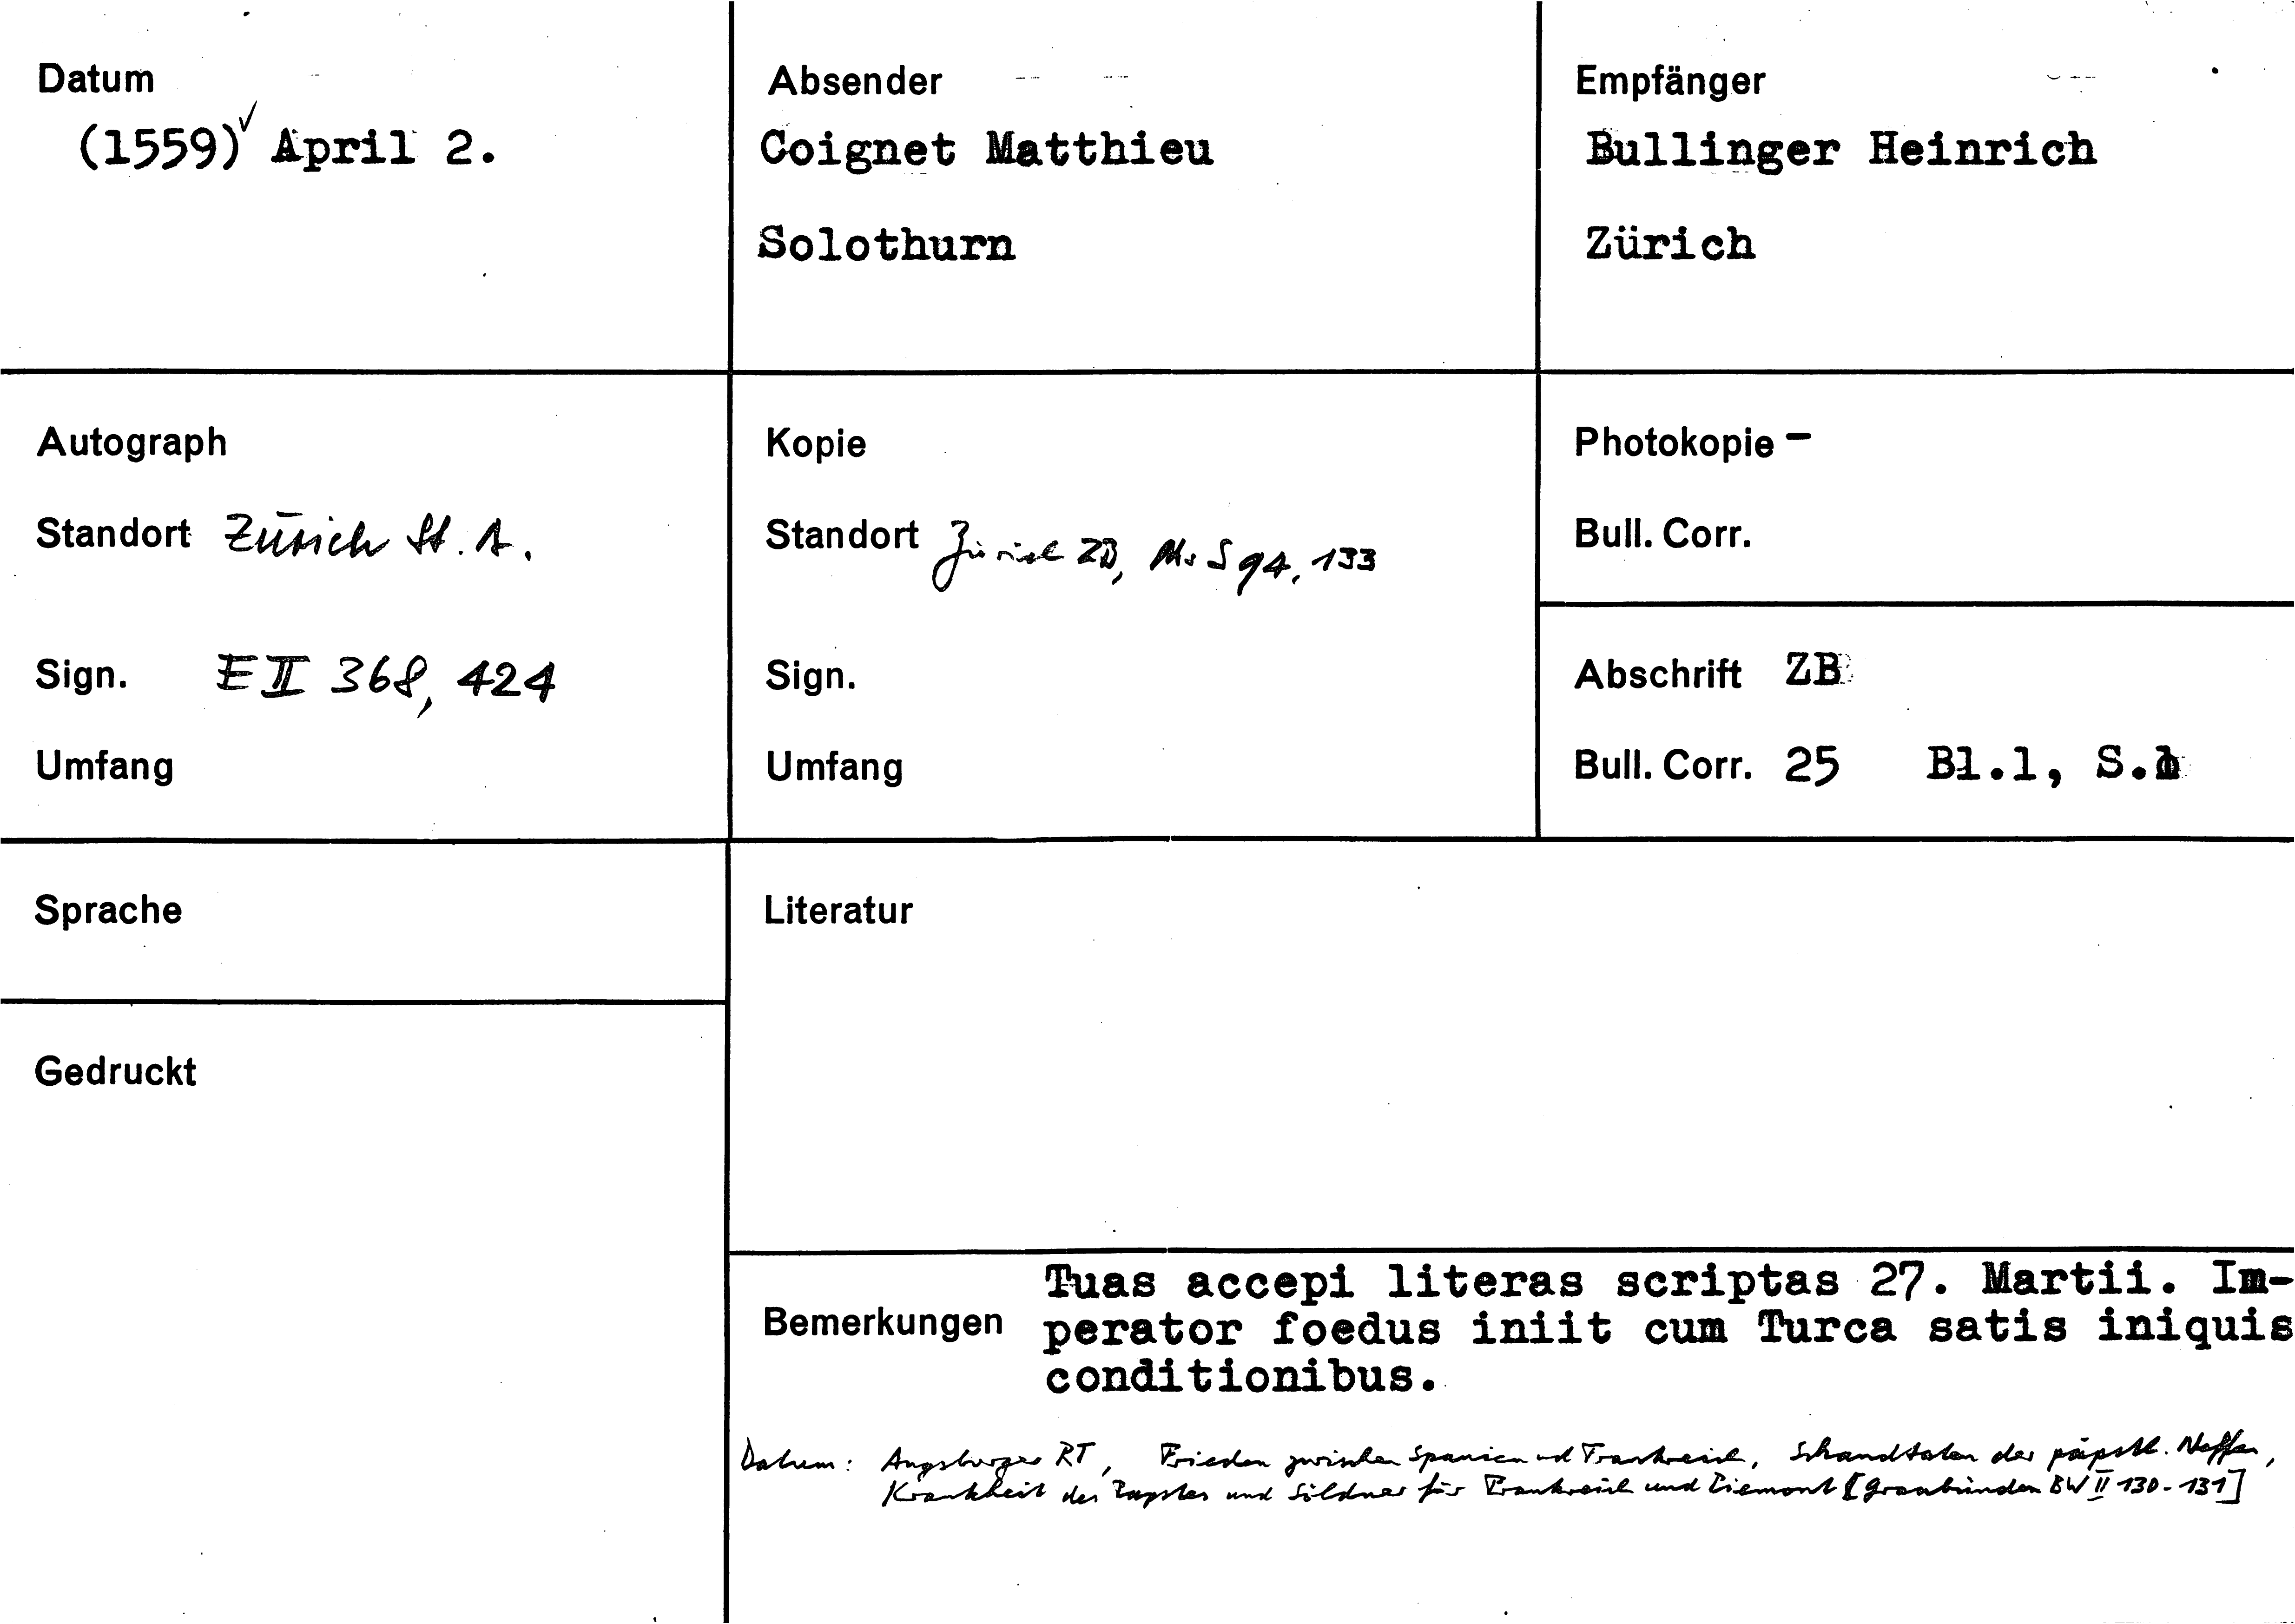 Datum
(1559)✓ April 2.
Absender
Coignet Matthieu
Solothurn
Empfänger
Bullinger Heinrich
Zürich
Autograph
Standort Zürich St. A.
Sign. E II 368, 424
Umfang
Kopie
Standort Zürich ZB, Ms S 94, 133
Sign.
Umfang
Photokopie -
Bull. Corr.
Abschrift ZB
Bull. Corr. 25 Bl.1, S.
Sprache
Literatur
Gedruckt
Bemerkungen
Tuas accepi literas scriptas 27. Martii. Im-
perator foedus iniit cum Turca satis iniquis
conditionibus.
Datum: Augsburger RT, Frieden zwischen Spanien und Frankreich, Schandtaten der päpstl. Neffen,
Krankheit des Papstes und Söldner für Frankreich und Piemont [Graubünden BW II 130-131]